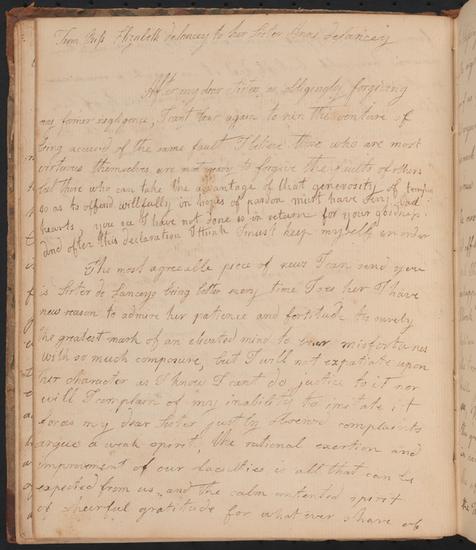 From Miss Elizabeth deLancey to her Sister Anne deLancey
After my dear Sister so obligingly forgiving
my former negligence, I cant bear again to run the venture of
being accused of the same fault I believe those who are most
virtuous themselves are most ready to forgive the faults of others
but those who can take the advantage of that generosity of temper
so as to offend willfully in hopes of pardon must have very bad
hearts, you see I have not done so in return for your goodness
and after this declaration I think I must keep myself in order
The most agreeable piece of news I can send you
is Sister de Lanceys being better every time I see her I have
new reason to admire her patience and fortitude tis surely
the greatest mark of an elevated mind to bear misfortunes
with so much composure, but I will not expatiate upon
her character as I know I cant do justice to it nor
will I complain of my inability to imitate it
for as my dear Sister justly observes complaints
argue a weak spirit, the rational exertion and
improvement of our faculties is all that can be
expected from us, and the calm contented spirit
of chearful gratitude for what ever share of